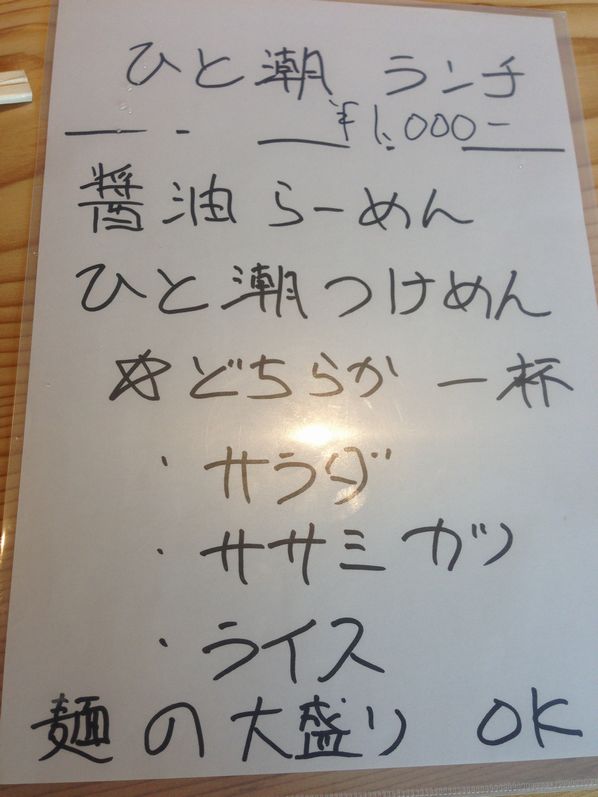 ひと潮 ランチ
¥1,000-
醤油らーめん
ひと潮つけめん
☆どちらか一杯
・サラダ
・ササミガリ
・ライス
麺の大盛り OK